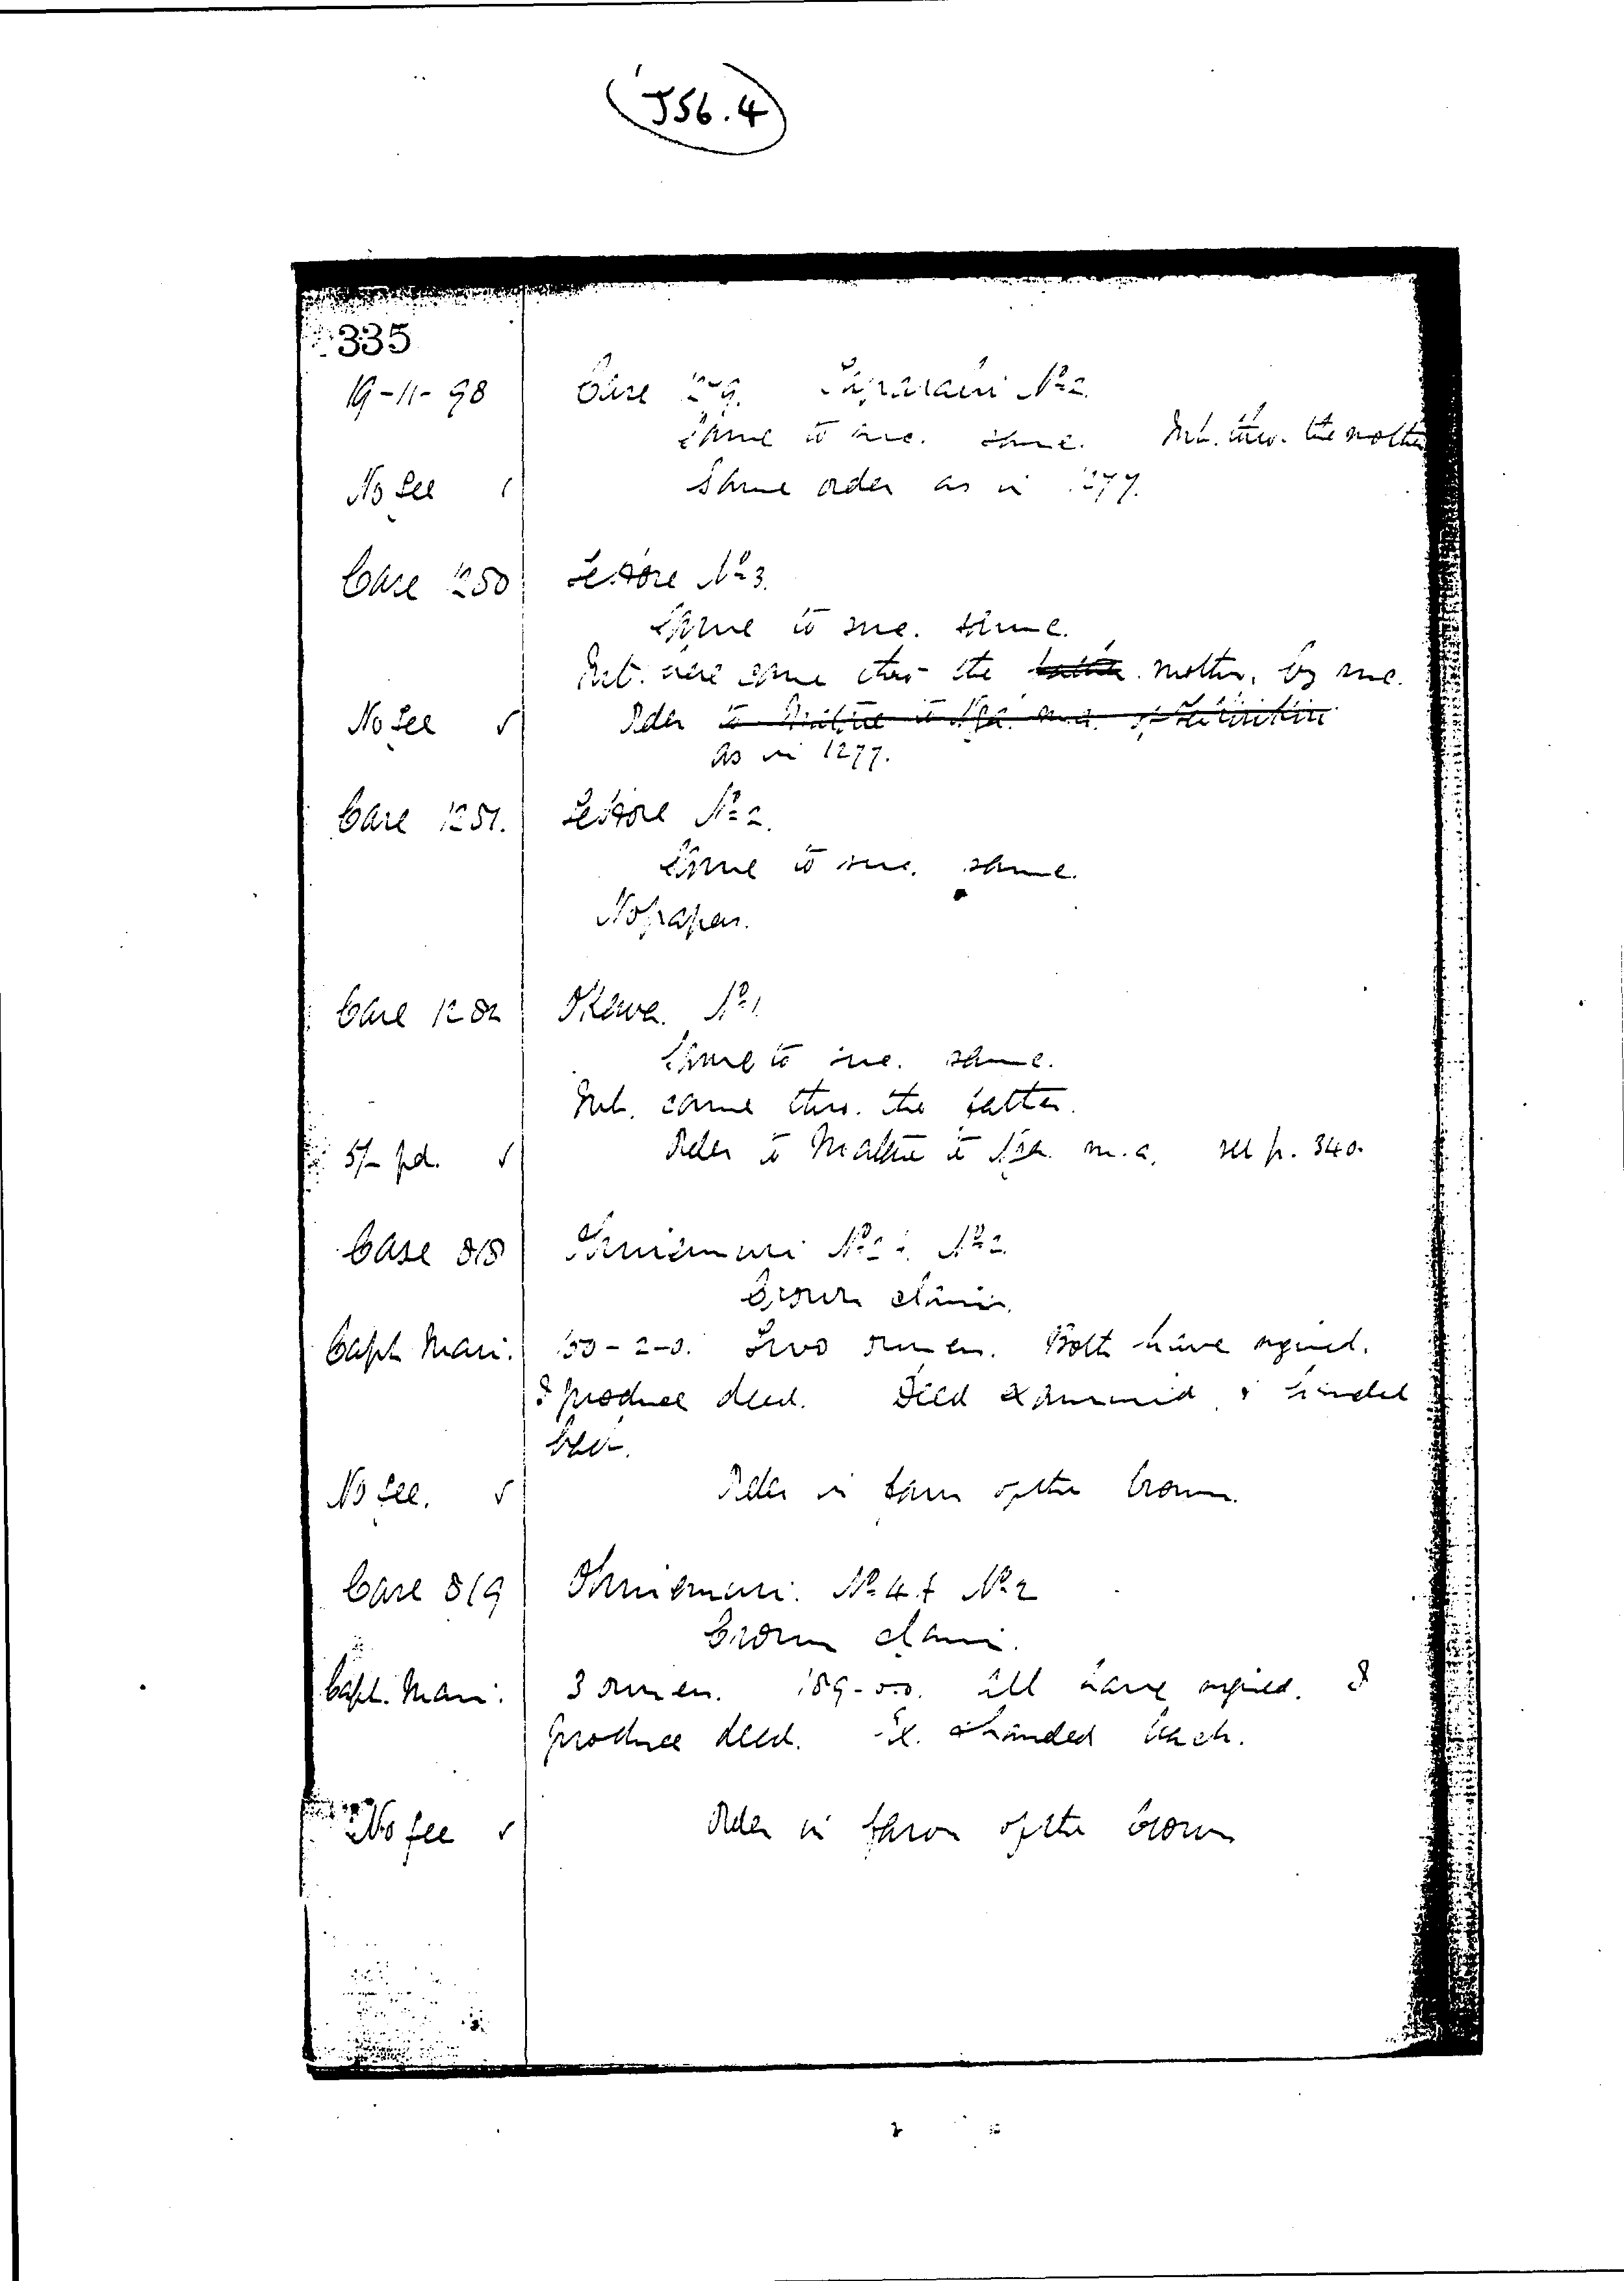 J56.4
335
19-11-98
Case 1279. No 2.
Same to me. same. Int. thro. the mother
No fee ✓ Same order as in 1277.
Case 1280 Te Kore No 3.
Same to me. same.
Int. here came thro the mother, by me.
No fee ✓ Order
as in 1277.
Case 1281. Te Kore No 2.
Same to me. same.
No paper.
Case 1282 Okawa. No 1.
Same to me. same.
Int. came thro. the father.
5/- pd. ✓ Order to to m.a. see p. 340.
Case 818 Ohuiomuri No 2
Crown claim.
Capt Mair. 150-2-0. Two owners. Both have signed.
I produce deed. Deed examined & handed
back.
No fee. ✓ Order in favor of the Crown.
Case 819 Ohuiomuri. No 4 No 2
Crown claim.
Capt. Mair. 3 owners. 189-0-0. All have signed. I
produce deed. Ex. & handed back.
No fee ✓ Order in favor of the Crown